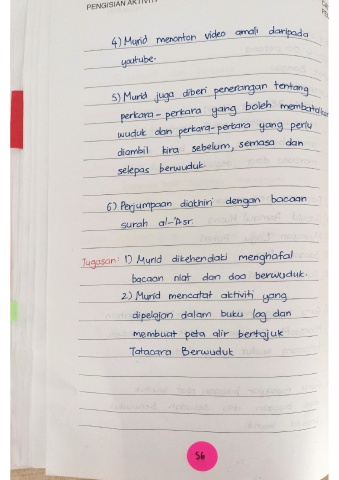 PENGISIAN AKTIVITI
4) Murid menonton video amali daripada
youtube.
5) Murid juga diberi penerangan tentang
perkara-perkara yang boleh membatalkan
wuduk dan perkara-perkara yang perlu
diambil kira sebelum, semasa dan
selepas berwuduk.
6) Perjumpaan diakhiri dengan bacaan
surah al-'Asr.
Tugasan: 1) Murid dikehendaki menghafal
bacaan niat dan doa berwuduk.
2) Murid mencatat aktiviti yang
dipelajari dalam buku log dan
membuat peta alir bertajuk
Tatacara Berwuduk
56